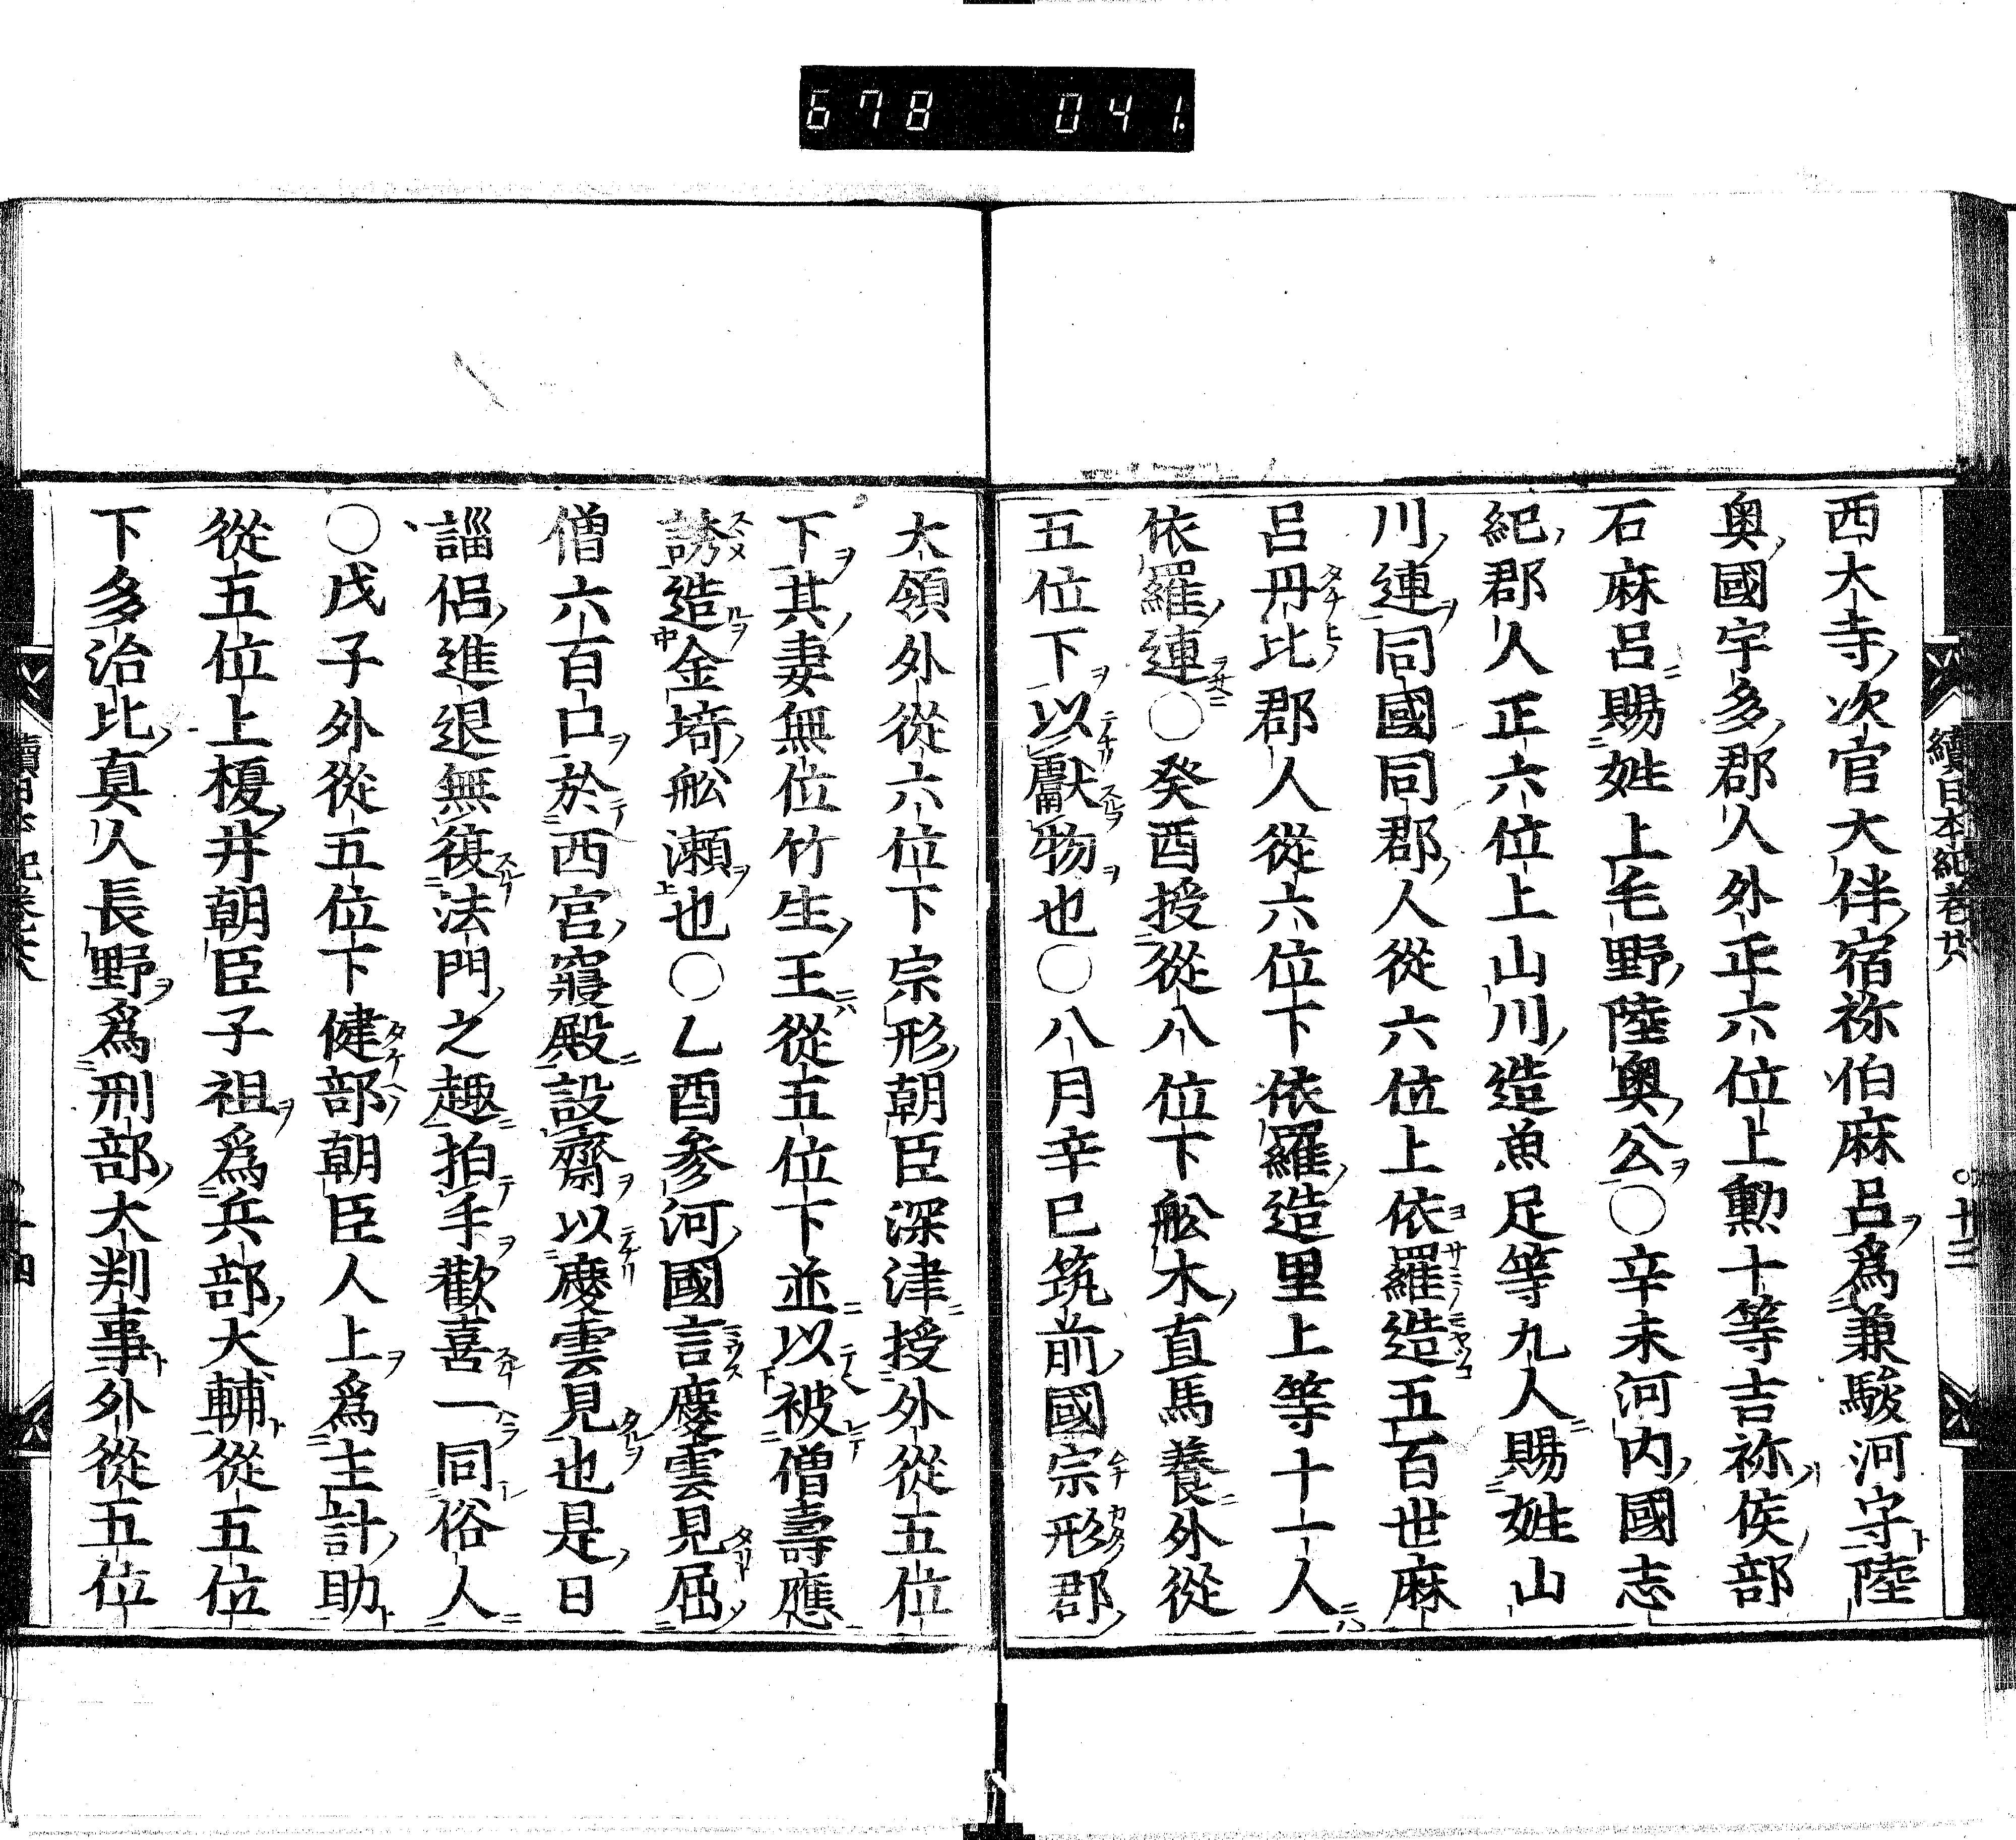 678 041.
續日本紀卷廿八
廿三
西大寺次官大伴宿祢伯麻呂爲兼駿河守陸
奥國宇多郡人外正六位上勲十等吉祢侯部
石麻呂賜姓上毛野陸奥公〇辛未河内國志
紀郡人正六位上山川造魚足等九人賜姓山
川連同國同郡人從六位上依羅造五百世麻
呂丹比郡人從六位下依羅造里上等十一人
依羅連〇癸酉授從八位下舩木直馬養外從
五位下以獻物也〇八月辛巳筑前國宗形郡
大領外從六位下宗形朝臣深津授外從五位
下其妻無位竹生王從五位下並以被僧壽應
誘造金埼舩瀬也〇乙酉参河國言慶雲見屈
僧六百口於西宮寢殿設齋以慶雲見也是日
緇侶進退無復法門之趣拍手歡喜一同俗人
〇戊子外從五位下健部朝臣人上爲主計助
從五位上榎井朝臣子祖爲兵部大輔從五位
下多治比真人長野爲刑部大判事外從五位